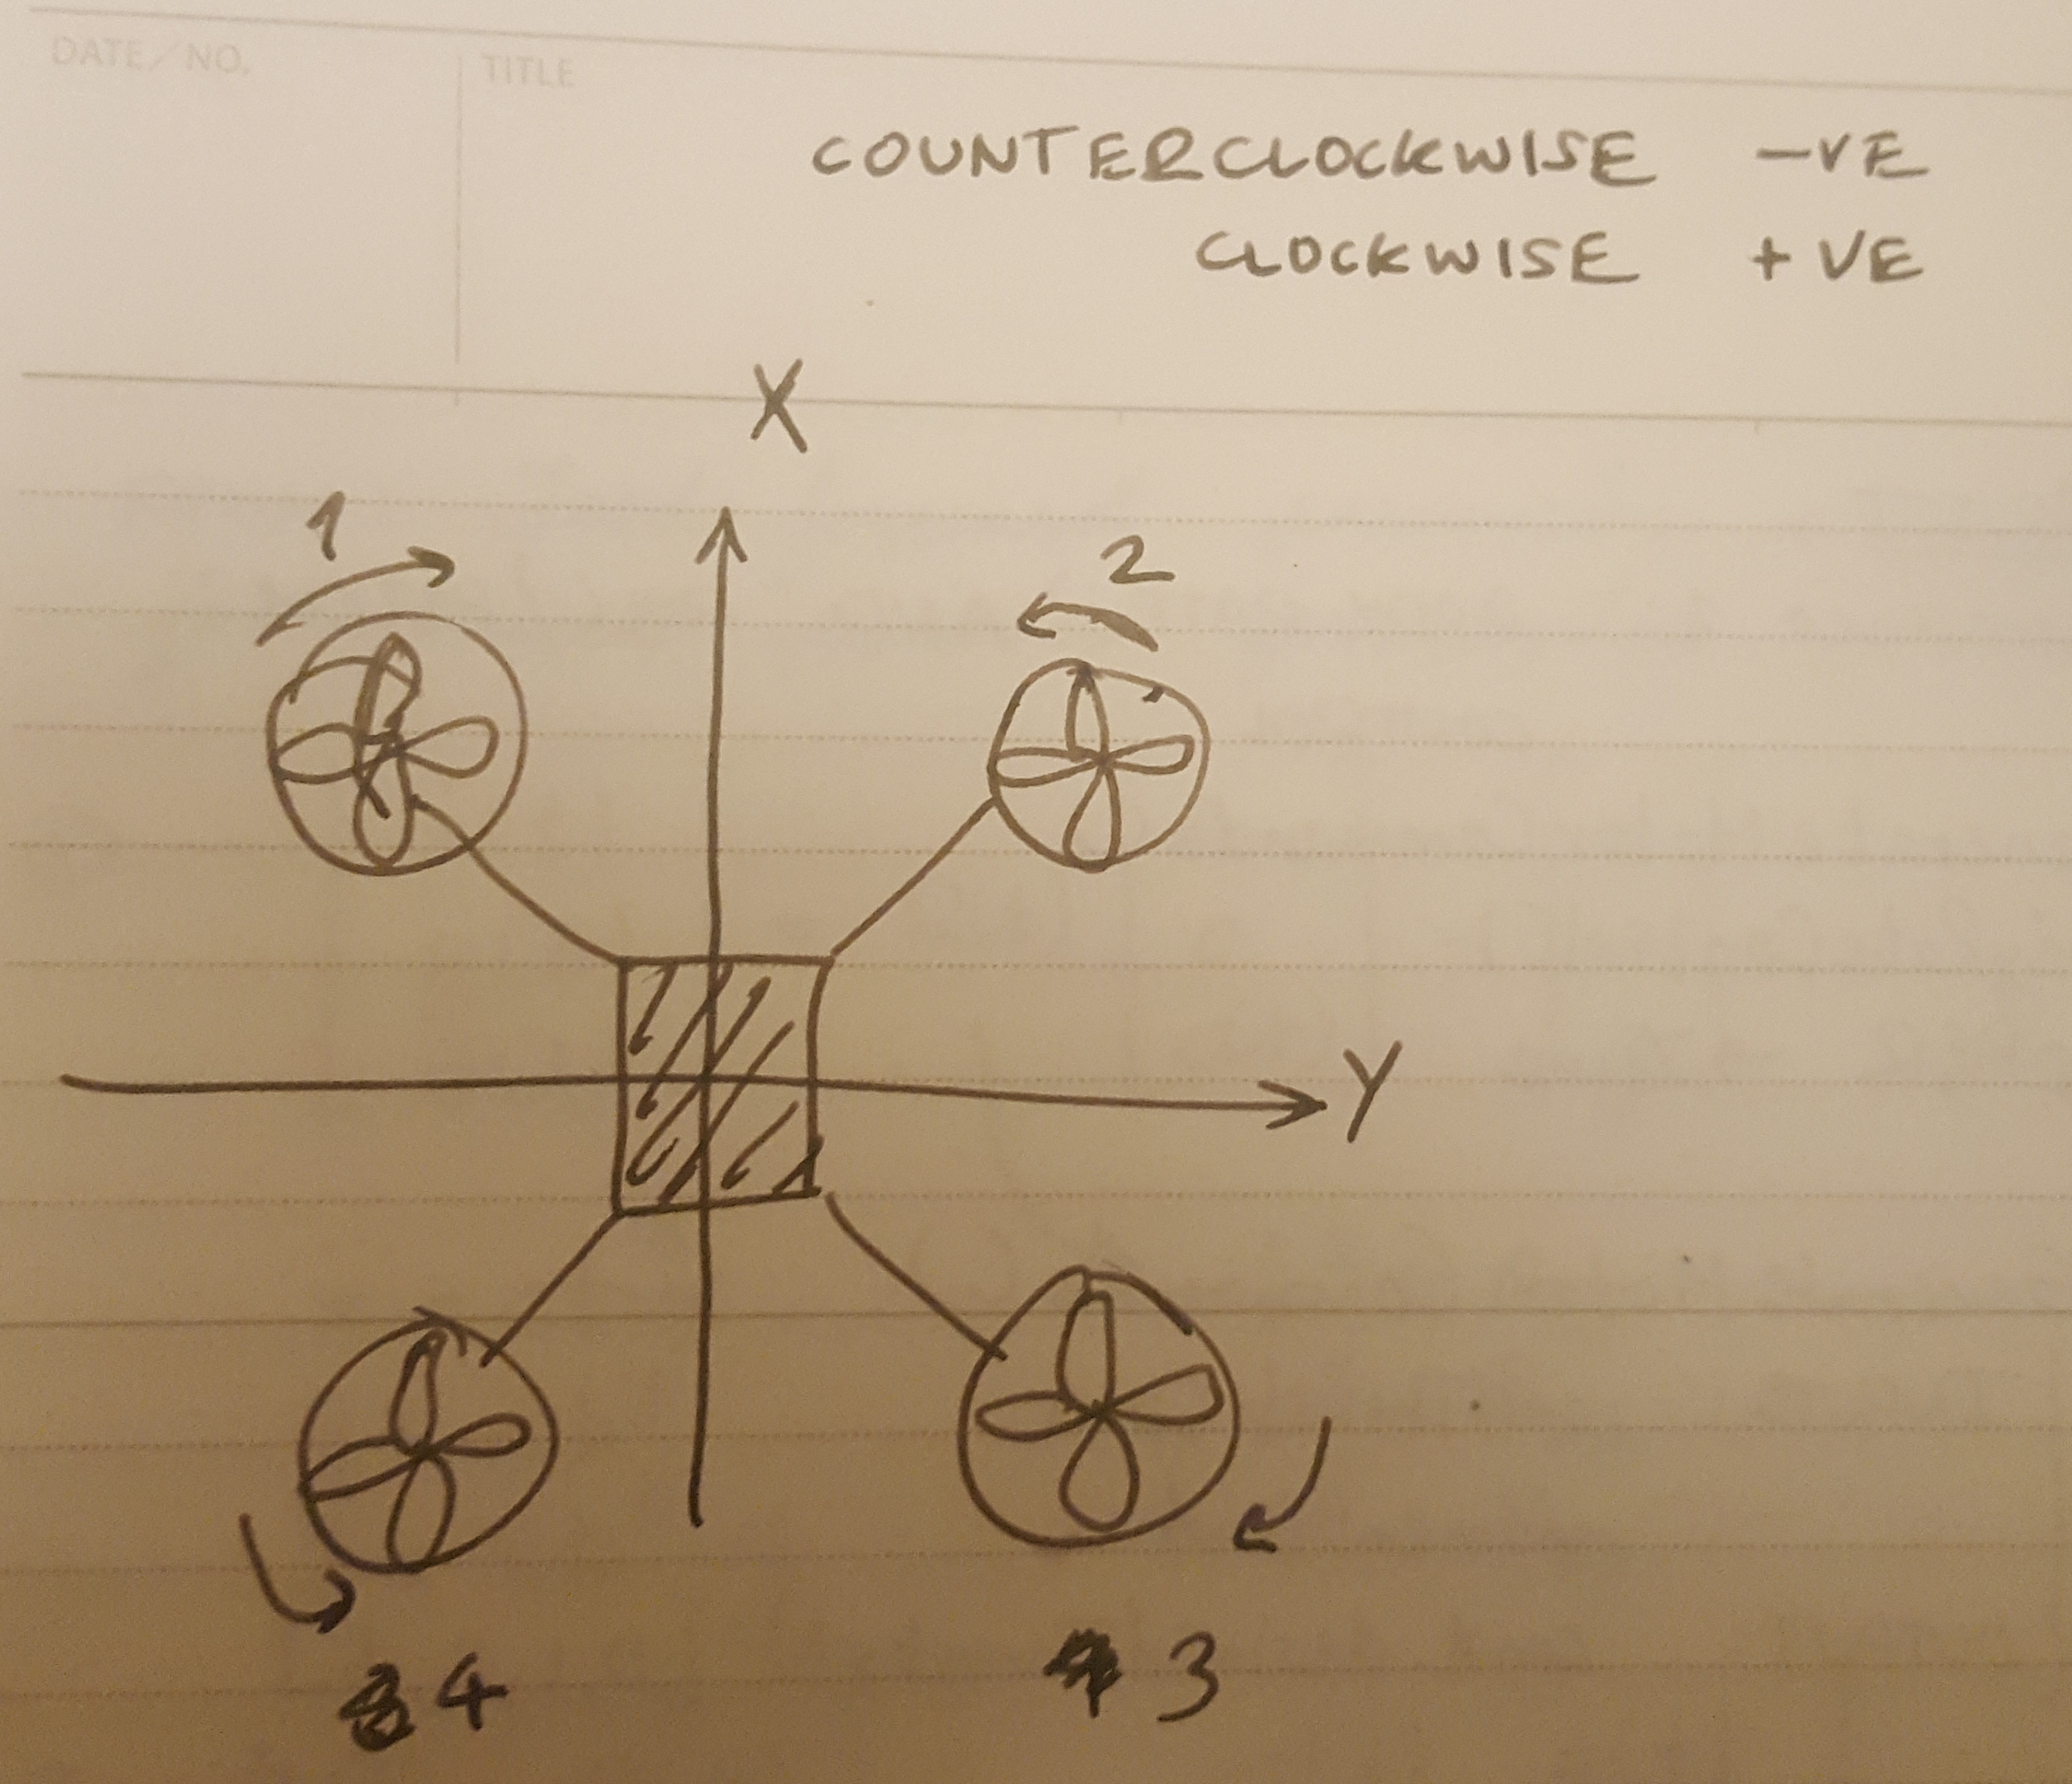 DATE/NO. TITLE
COUNTERCLOCKWISE -VE
CLOCKWISE +VE
X
1
2
Y
4
3